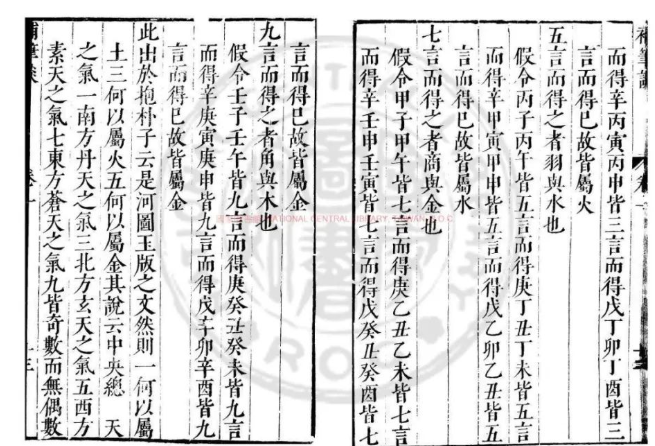 補筆談 卷一
而得辛丙寅丙申皆三言而得戊丁卯丁酉皆三
言而得巳故皆屬火
五言而得之者羽與水也
假令丙子丙午皆五言而得庚丁丑丁未皆五言
而得辛甲寅甲申皆五言而得戊乙卯乙丑皆五
言而得巳故皆屬水
七言而得之者商與金也
假令甲子甲午皆七言而得庚乙丑乙未皆七言
而得辛壬申壬寅皆七言而得戊癸丑癸酉皆七
言而得巳故皆屬金
九言而得之者角與木也
假令壬子壬午皆九言而得庚癸丑癸未皆九言
而得辛庚寅庚申皆九言而得戊辛卯辛酉皆九
言而得巳故皆屬金
此出於抱朴子云是河圖玉版之文然則一何以屬
土三何以屬火五何以屬金其說云中央總 天
之氣一南方丹天之氣三北方玄天之氣五西方
素天之氣七東方蒼天之氣九皆奇數而無偶數
補筆談 卷一 十三
NATIONAL CENTRAL LIBRARY